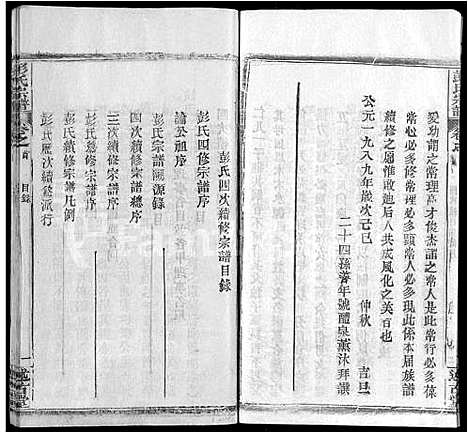 愛幼謂之常理高才俊杰謂之常人是此常行必多
常心必多修常理必多顯常人必多現此係本屆族譜
續修之愿惟敢勉后人共成風化之美旨也
公元一九八九年歲次己巳 仲秋 吉旦
二十四孫耆年號醴泉薰沐拜譔
彭氏四次續修宗譜目錄
彭氏四修宗譜序
論公祖序
彭氏宗譜關源錄
四次續修宗譜總序
三次續修宗譜序
彭氏總修宗譜序
彭氏續修宗譜凡例
彭氏歷次續登派行
彭氏宗譜
卷之首
目錄
一